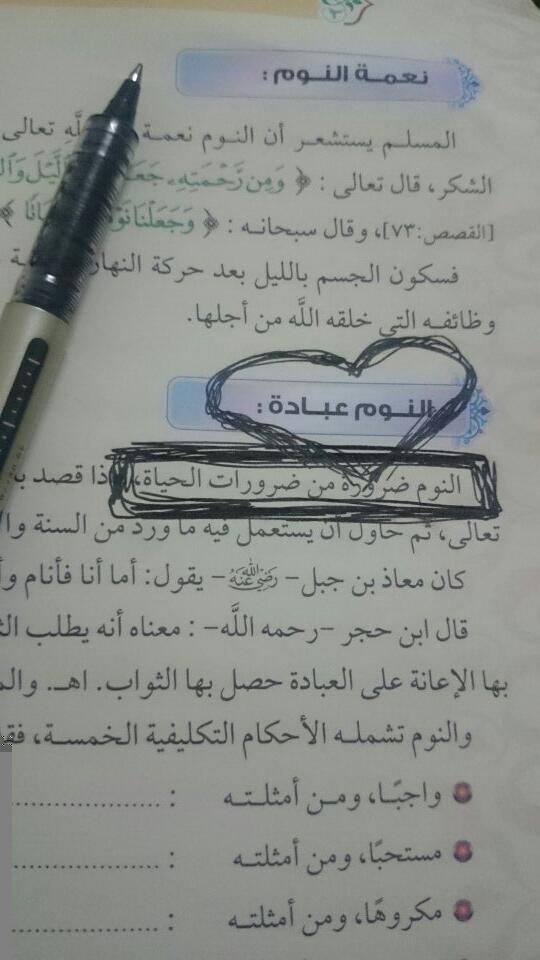 نعمـة النـوم :
المسلـم يستشعـر أن النـوم نعمـة تعالى
الشكر، قال تعالى : ﴿ وَمِن رَّحْمَتِهِۦ جَعَلَ
[القصص:٧٣]، وقال سبحانـه : ﴿ وَجَعَلْنَا ﴾
فسكون الجسم بالليل بعد حركة النهار
وظائفـه التي خلقه اللَّه من أجلها.
النـوم عبـادة :
النوم ضرورة من ضرورات الحياة، قصد
تعالى، ثم حاول أن يستعمل فيه ما ورد من السنة
كان معاذ بن جبل- رَضِيَ اللهُ عَنْهُ - يقول: أما أنا فأنام
قال ابن حجر -رحمه اللَّه- : معناه أنه يطلب
بها الإعانة على العبادة حصل بها الثواب. اهـ.
والنوم تشملـه الأحكام التكليفية الخمسـة،
واجبًـا، ومـن أمثلـتـه : ....................
مستحبًا، ومن أمثلتـه : ....................
مكروهًا، ومن أمثلتـه : ....................